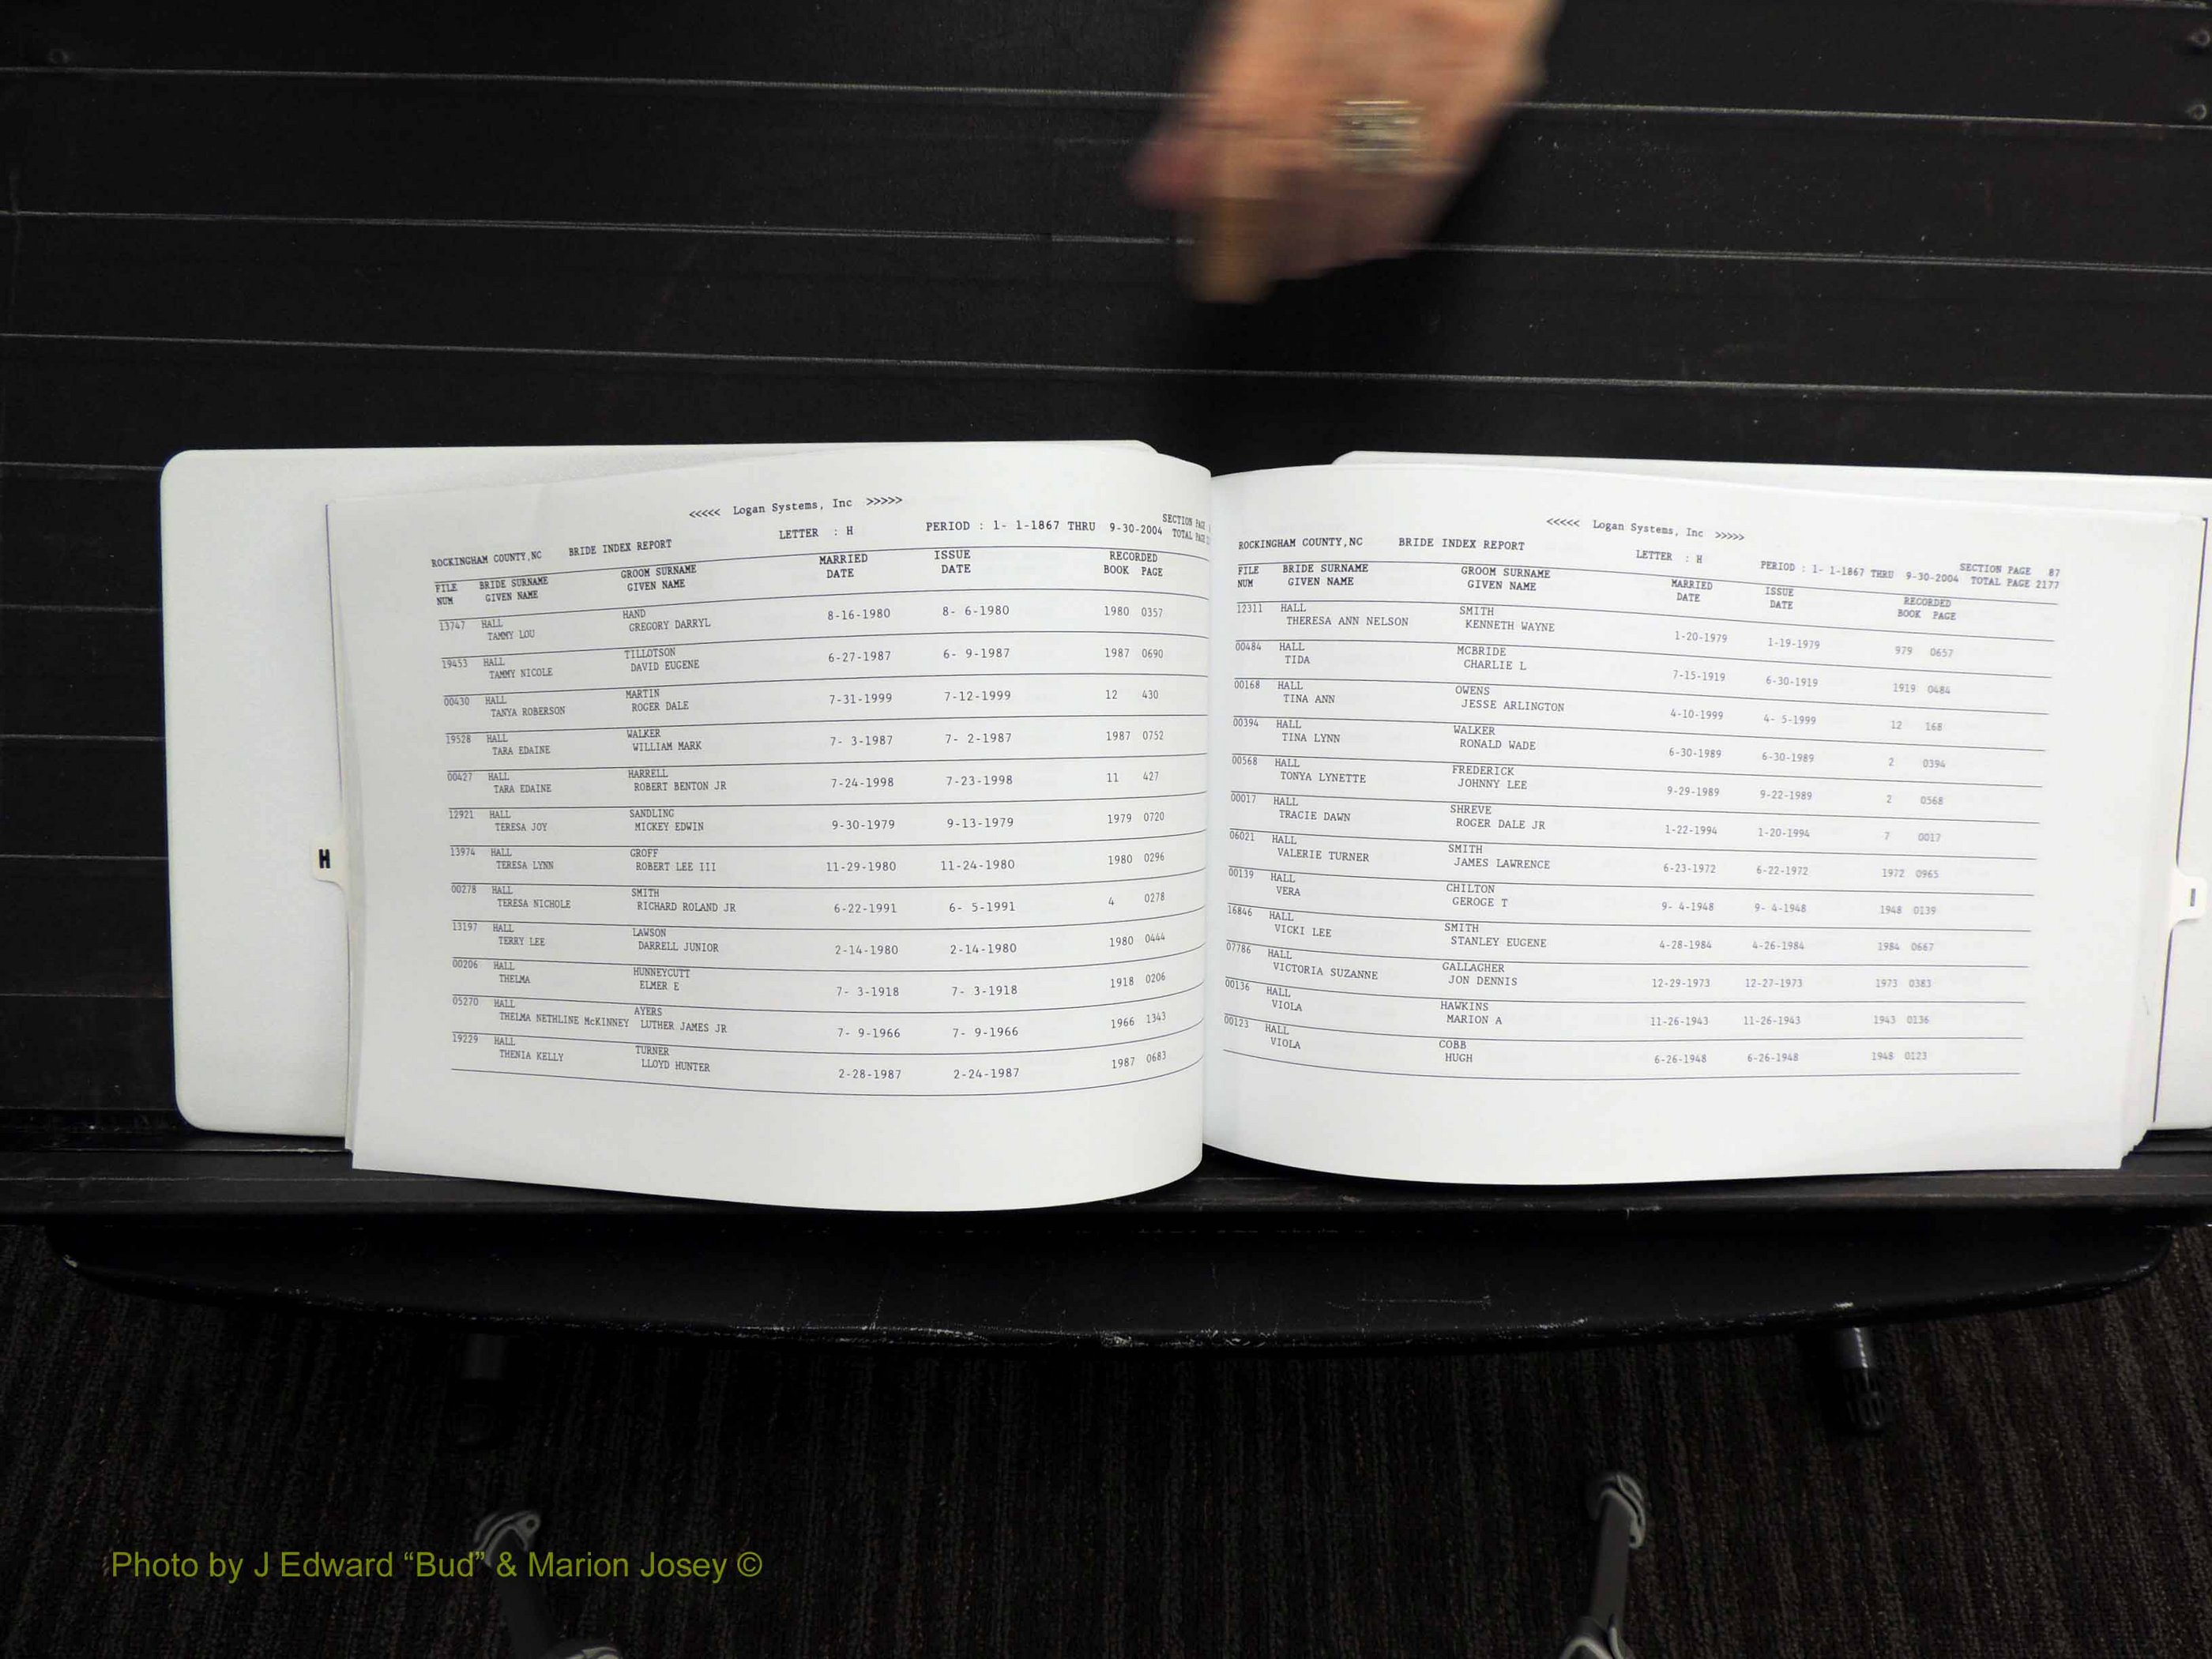 <<<<< Logan Systems, Inc >>>>>
ROCKINGHAM COUNTY,NC BRIDE INDEX REPORT LETTER : H PERIOD : 1- 1-1867 THRU 9-30-2004 SECTION PAGE
TOTAL PAGE
FILE BRIDE SURNAME GROOM SURNAME MARRIED ISSUE RECORDED
NUM GIVEN NAME GIVEN NAME DATE DATE BOOK PAGE
13747 HALL HAND
TAMMY LOU GREGORY DARRYL 8-16-1980 8- 6-1980 1980 0357
19453 HALL TILLOTSON
TAMMY NICOLE DAVID EUGENE 6-27-1987 6- 9-1987 1987 0690
00430 HALL MARTIN
TANYA ROBERSON ROGER DALE 7-31-1999 7-12-1999 12 430
19528 HALL WALKER
TARA EDAINE WILLIAM MARK 7- 3-1987 7- 2-1987 1987 0752
00427 HALL HARRELL
TARA EDAINE ROBERT BENTON JR 7-24-1998 7-23-1998 11 427
12921 HALL SANDLING
TERESA JOY MICKEY EDWIN 9-30-1979 9-13-1979 1979 0720
13974 HALL GROFF
TERESA LYNN ROBERT LEE III 11-29-1980 11-24-1980 1980 0296
00278 HALL SMITH
TERESA NICHOLE RICHARD ROLAND JR 6-22-1991 6- 5-1991 4 0278
13197 HALL LAWSON
TERRY LEE DARRELL JUNIOR 2-14-1980 2-14-1980 1980 0444
00206 HALL HUNNEYCUTT
THELMA ELMER E 7- 3-1918 7- 3-1918 1918 0206
05270 HALL AYERS
THELMA NETHLINE McKINNEY LUTHER JAMES JR 7- 9-1966 7- 9-1966 1966 1343
19229 HALL TURNER
THENIA KELLY LLOYD HUNTER 2-28-1987 2-24-1987 1987 0683
H
<<<<< Logan Systems, Inc >>>>>
ROCKINGHAM COUNTY,NC BRIDE INDEX REPORT LETTER : H PERIOD : 1- 1-1867 THRU 9-30-2004 SECTION PAGE 87
TOTAL PAGE 2177
FILE BRIDE SURNAME GROOM SURNAME MARRIED ISSUE RECORDED
NUM GIVEN NAME GIVEN NAME DATE DATE BOOK PAGE
12311 HALL SMITH
THERESA ANN NELSON KENNETH WAYNE 1-20-1979 1-19-1979 979 0657
00484 HALL MCBRIDE
TIDA CHARLIE L 7-15-1919 6-30-1919 1919 0484
00168 HALL OWENS
TINA ANN JESSE ARLINGTON 4-10-1999 4- 5-1999 12 168
00394 HALL WALKER
TINA LYNN RONALD WADE 6-30-1989 6-30-1989 2 0394
00568 HALL FREDERICK
TONYA LYNETTE JOHNNY LEE 9-29-1989 9-22-1989 2 0568
00017 HALL SHREVE
TRACIE DAWN ROGER DALE JR 1-22-1994 1-20-1994 7 0017
06021 HALL SMITH
VALERIE TURNER JAMES LAWRENCE 6-23-1972 6-22-1972 1972 0965
00139 HALL CHILTON
VERA GEROGE T 9- 4-1948 9- 4-1948 1948 0139
16846 HALL SMITH
VICKI LEE STANLEY EUGENE 4-28-1984 4-26-1984 1984 0667
07786 HALL GALLAGHER
VICTORIA SUZANNE JON DENNIS 12-29-1973 12-27-1973 1973 0383
00136 HALL HAWKINS
VIOLA MARION A 11-26-1943 11-26-1943 1943 0136
00123 HALL COBB
VIOLA HUGH 6-26-1948 6-26-1948 1948 0123
I
Photo by J Edward “Bud” & Marion Josey ©